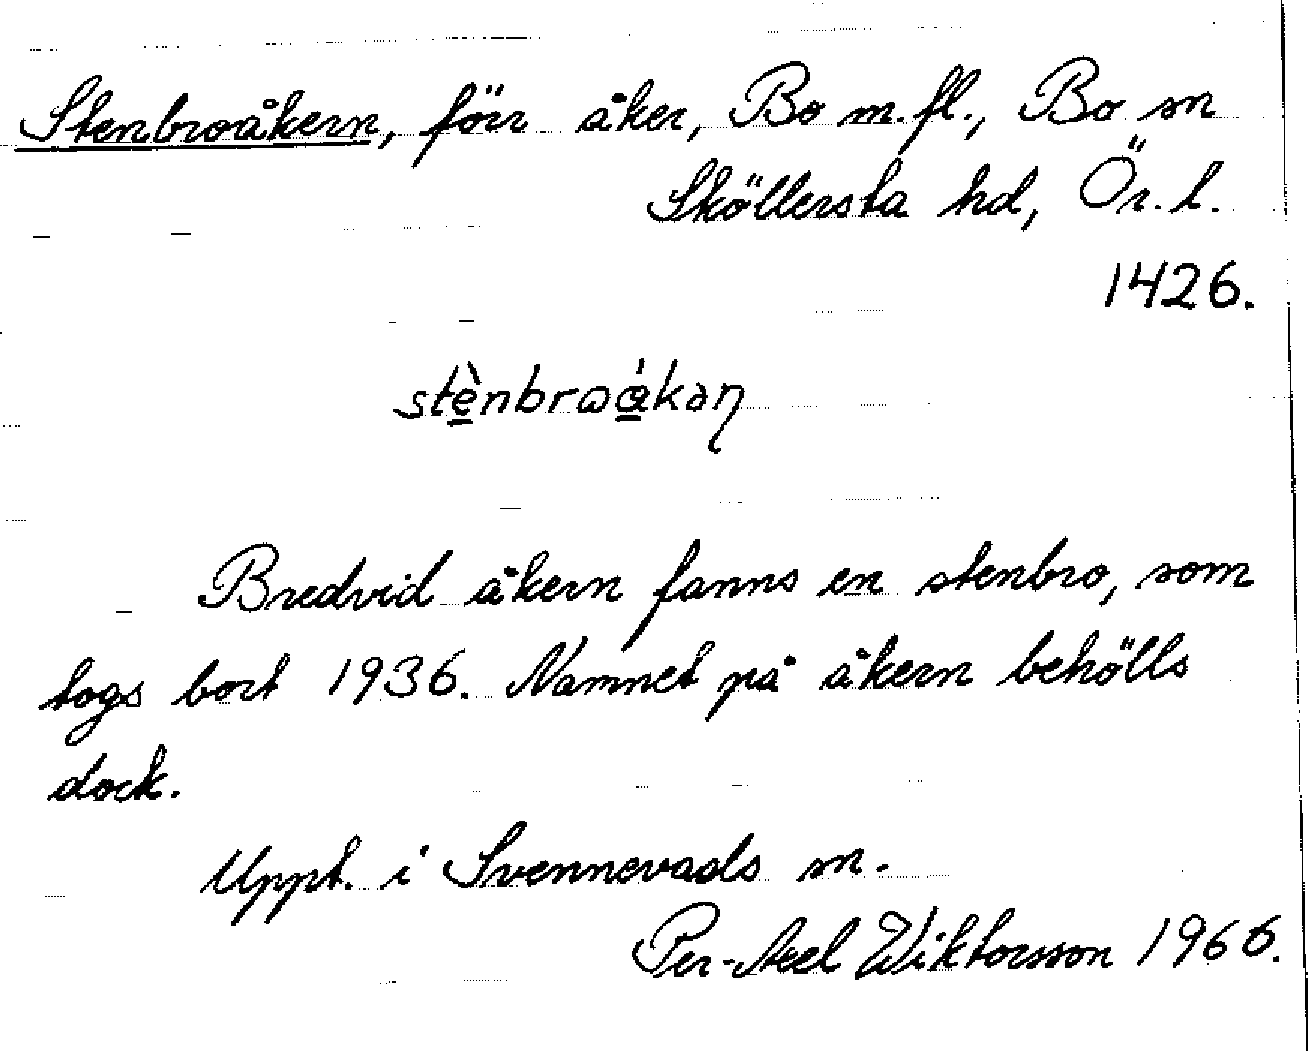 Stenbroåkern, förr åker, Bo m.fl., Bo sn
Sköllersta hd, Ör. l.
1426.
stènbroákan
Bredvid åkern fanns en stenbro, som
togs bort 1936. Namnet på åkern behölls
dock.
Uppt. i Svennevads sn.
Per-Axel Wiktorsson 1966.